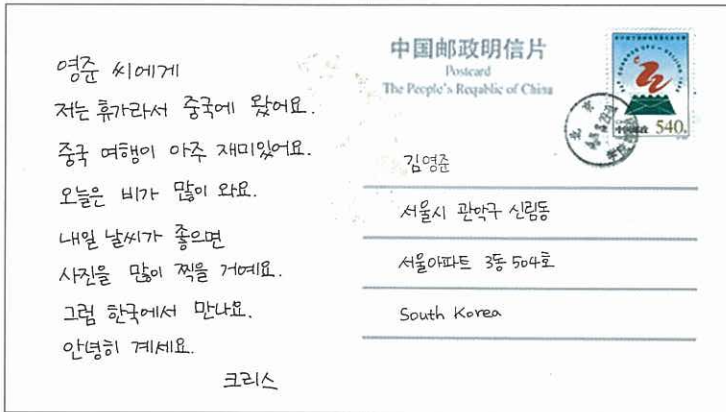 영준 씨에게
저는 휴가라서 중국에 왔어요.
중국 여행이 아주 재미있어요.
오늘은 비가 많이 와요.
내일 날씨가 좋으면
사진을 많이 찍을 거예요.
그럼 한국에서 만나요.
안녕히 계세요.
크리스
中国邮政明信片
Postcard
The People's Reqablic of China
540
김영준
서울시 관악구 신림동
서울아파트 3동 504호
South Korea